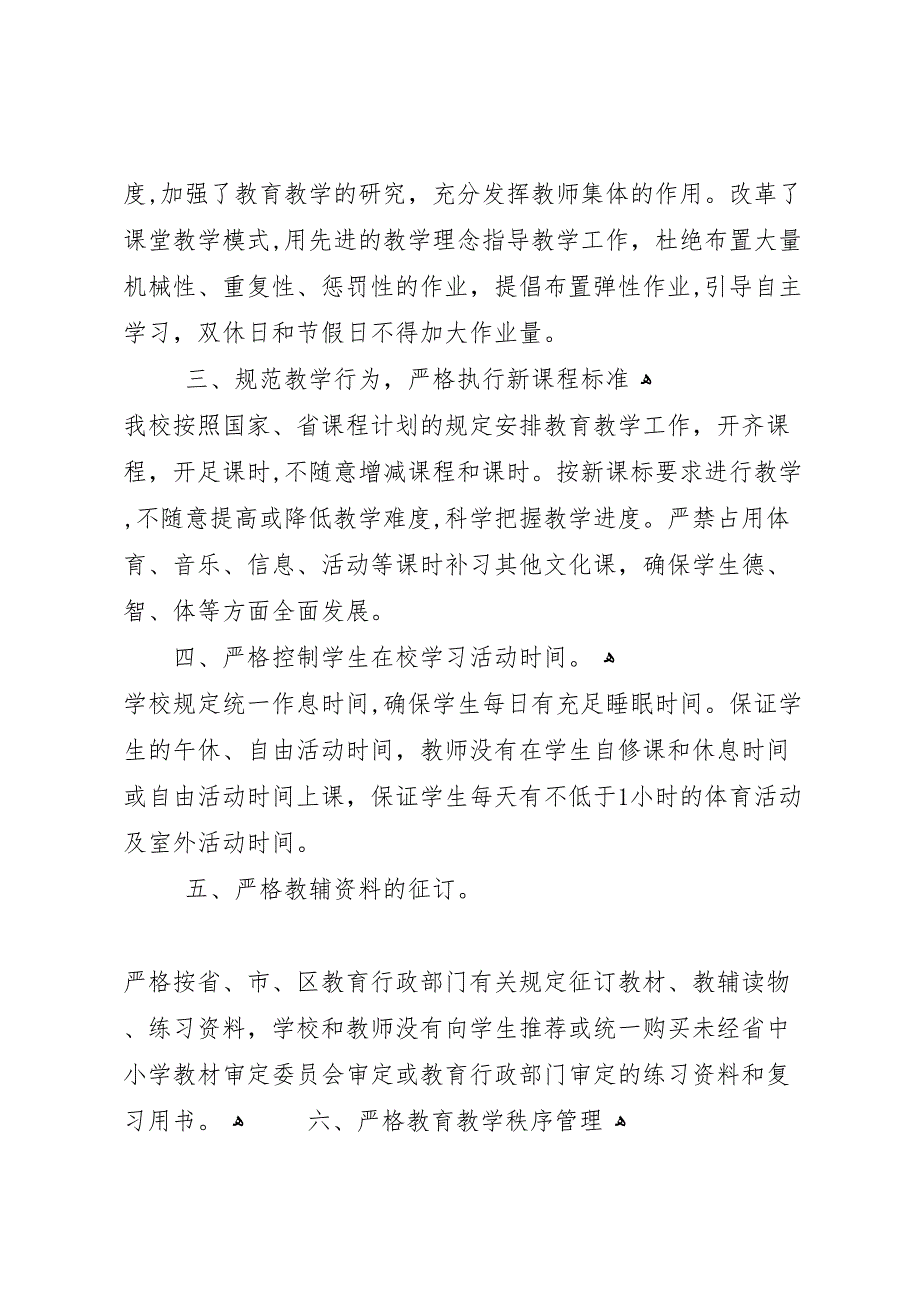 度,加强了教育教学的研究，充分发挥教师集体的作用。改革了
课堂教学模式,用先进的教学理念指导教学工作，杜绝布置大量
机械性、重复性、惩罚性的作业，提倡布置弹性作业,引导自主
学习，双休日和节假日不得加大作业量。
三、规范教学行为，严格执行新课程标准 ﻫ
我校按照国家、省课程计划的规定安排教育教学工作，开齐课
程，开足课时,不随意增减课程和课时。按新课标要求进行教学
,不随意提高或降低教学难度,科学把握教学进度。严禁占用体
育、音乐、信息、活动等课时补习其他文化课，确保学生德、
智、体等方面全面发展。
四、严格控制学生在校学习活动时间。 ﻫ
学校规定统一作息时间,确保学生每日有充足睡眠时间。保证学
生的午休、自由活动时间，教师没有在学生自修课和休息时间
或自由活动时间上课，保证学生每天有不低于1小时的体育活动
及室外活动时间。
五、严格教辅资料的征订。
严格按省、市、区教育行政部门有关规定征订教材、教辅读物
、练习资料，学校和教师没有向学生推荐或统一购买未经省中
小学教材审定委员会审定或教育行政部门审定的练习资料和复
习用书。 ﻫ 六、严格教育教学秩序管理 ﻫ